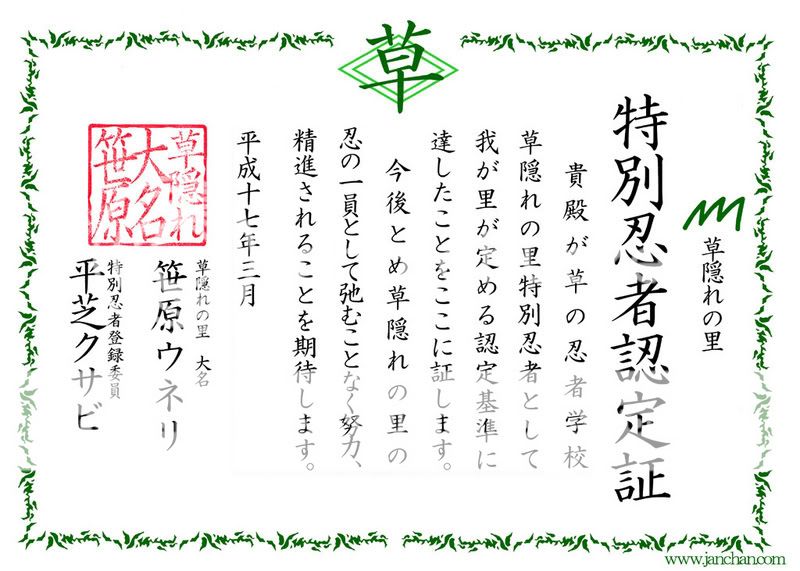 草
草隠れの里
特別忍者認定証
貴殿が草の忍者学校
草隠れの里特別忍者として
我が里が定める認定基準に
達したことをここに証します。
今後とめ草隠れの里の
忍の一員として弛むことなく努力、
精進されることを期待します。
平成十七年三月
草隠れ
大名
笹原
草隠れの里 大名
笹原ウネリ
特別忍者登録委員
平芝クサビ
www.janchan.com